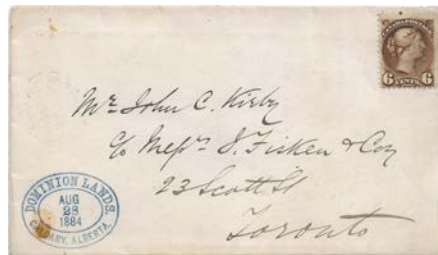 CANADA POSTAGE
6 CENTS 6
Mr. John C. Kirby
c/o Messrs J. Fisken & Coy
23 Scott St
Toronto
DOMINION LANDS.
AUG
28
1884
CALGARY, ALBERTA.